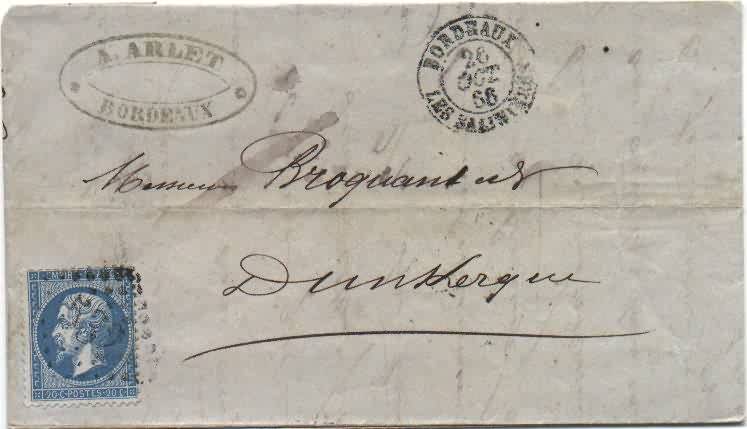 A. ARLET
BORDEAUX
BORDEAUX
26
66
LES SALINIÈRES
Messieurs Broquant et
Dunkerque
EMP
20 C POSTES 20 C